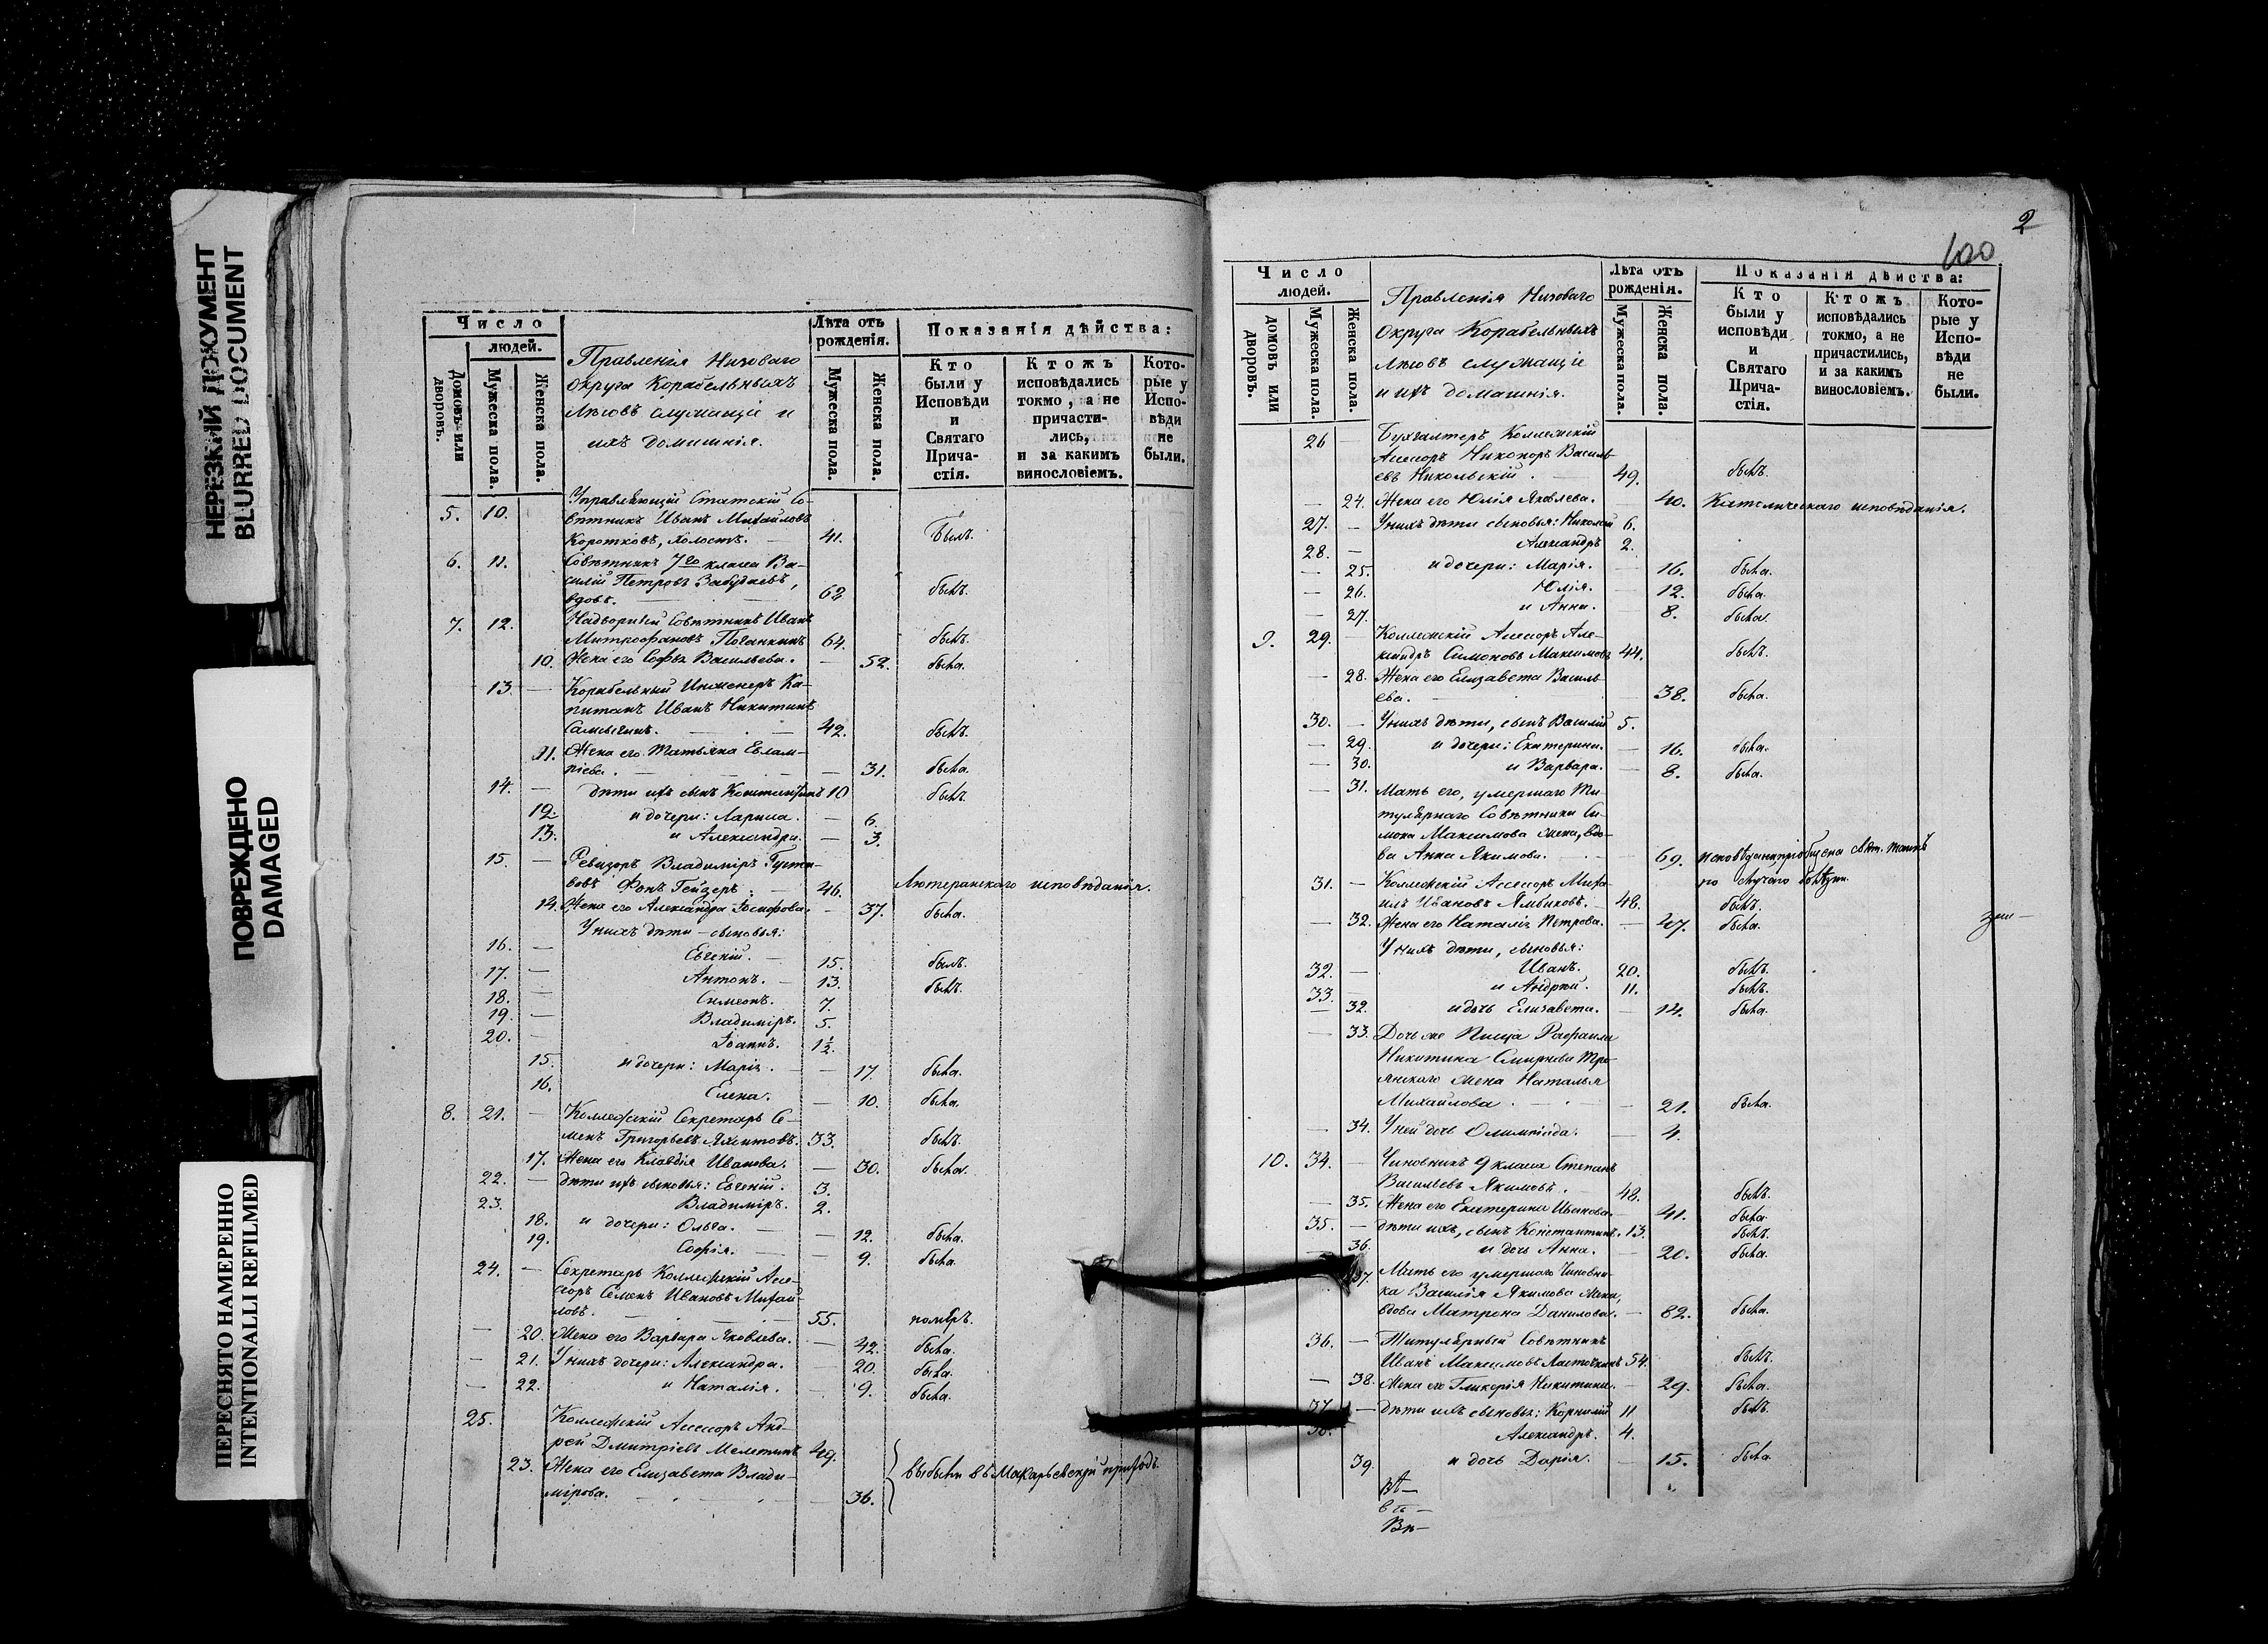 НЕРЕЗКИЙ ДОКУМЕНТ
BLURRED DOCUMENT
ПОВРЕЖДЕНО
DAMAGED
ПЕРЕСНЯТО НАМЕРЕННО
INTENTIONALLI REFILMED
Число
людей.
Домовъ или дворовъ.
Мужеска пола.
Женска пола.
Правленія Низоваго
округа Корабельныхъ
лѣсовъ служащіе и
ихъ домашнія.
Лѣта отъ рожденія.
Мужеска пола.
Женска пола.
Показанія дѣйства:
Кто были у Исповѣди и Святаго Причастія.
Ктожъ исповѣдались токмо, а не причастились, и за какимъ винословіемъ.
Которые у Исповѣди не были.
5. 10. Управляющій Статскій Со-
вѣтникъ Иванъ Михайловъ
Коротковъ, холостъ. — 41. былъ.
6. 11. Совѣтникъ 7го класса Ва-
силій Петровъ
вдовъ. 62 былъ.
7. 12. Надворный Совѣтникъ Иванъ
Митрофановъ Поганкинъ 64. былъ.
10. Жена его Софья Васильева. — 52. была.
13. — Корабельный Инженеръ Ка-
питанъ Иванъ Никитинъ
42. былъ.
11. Жена его Татьяна Евлам-
піева. — 31. была.
14. — дѣти ихъ сынъ Константинъ 10 былъ.
12 и дочери: Лариса. — 6.
13. и Александра. — 3.
15. — Ревизоръ Владиміръ Густа-
вовъ Фонъ Гейзеръ. — 46. Лютеранскаго исповѣданія.
14. Жена его Александра Іосифова. — 37. была.
У нихъ дѣти – сыновья:
16. — Евгеній. — 15. былъ.
17. — Антонъ. — 13. былъ.
18. — Симеонъ. 7.
19. — Владиміръ. 5.
20. — Іоаннъ. 1½.
15. и дочери: Марія. — 17. была.
16. Елена. — 10. была.
8. 21. — Коллежскій Секретарь Се-
менъ Григорьевъ Яхонтовъ. 33. былъ.
17. Жена его Клавдія Иванова. — 30. была.
22. — дѣти ихъ сыновья: Евгеній. 3.
23. Владиміръ. 2.
18. и дочери: Ольга. — 12. была.
19. Софія. — 9. была.
24. — Секретарь Коллежскій Ассе-
соръ Семенъ Ивановъ Михай-
ловъ. 55. померъ.
— 20. Жена его Варвара Яковлева. — 42. была.
— 21. У нихъ дочери: Александра. — 20. была.
— 22. и Наталія. — 9. была.
25. Коллежскій Ассесоръ Анд-
рей Дмитріевъ Мелетинъ 49.
23. Жена его Елизавета Влади-
мірова. — 36. выбыли въ Макарьевскій приходъ.
2
600
Число
людей.
домовъ или дворовъ.
Мужеска пола.
Женска пола.
Правленія Низоваго
округа Корабельныхъ
лѣсовъ служащіе
и ихъ домашнія.
Лѣта отъ рожденія.
Мужеска пола.
Женска пола.
Показанія дѣиства:
Кто были у исповѣди и Святаго Причастія.
Ктожъ исповѣдались токмо, а не причастились, и за какимъ винословіемъ.
Которые у Исповѣди не были.
26 — Бухгалтеръ Коллежскій
Ассесоръ Никаноръ Василь-
евъ Никольскій. 49. былъ.
— 24. Жена его Юлія Яковлева. 40. Католическаго исповѣданія.
27. — У нихъ дѣти сыновья: Николай 6.
28. — Александръ 2.
— 25. и дочери: Марія. — 16. была.
— 26. Юлія. — 12. была.
— 27. и Анна. — 8. была.
9. 29. — Коллежскій Ассесоръ Але-
ксандръ Симоновъ Максимовъ 44. былъ.
— 28. Жена его Елизавета Василь-
ева. — 38. была.
30. — У нихъ дѣти, сынъ Василій 5.
— 29. и дочери: Екатерина. — 16. была.
— 30. и Варвара. — 8. была.
— 31. Мать его, умершаго Ти-
тулярнаго Совѣтника Си-
мона Максимова жена, вдо-
ва Анна Якимова. — 69. исповѣдана, пріобщена свят. таинъ
по случаю болѣзни.
31. — Коллежскій Ассесоръ Миха-
илъ Ивановъ Ямбиковъ. 48. былъ.
— 32. Жена его Наталія Петрова. — 47. была.
У нихъ дѣти, сыновья:
32. — Иванъ. 20. былъ.
33. — и Андрей. 11. былъ.
— 32. и дочь Елизавета. — 14. была.
— 33. Дочь же
Никитина Смирнова
жена Наталья
Михайлова. — 21. была.
— 34. У ней дочь Олимпіада. — 4.
10. 34. — Чиновникъ 9 класса Степанъ
Васильевъ Якимовъ. 48. былъ.
— 35. Жена его Екатерина Иванова. 41. была.
35. — дѣти ихъ, сынъ Константинъ. 13. былъ.
36. и дочь Анна. — 20. была.
37. Мать его умершаго Чиновни-
ка Василія Якимова жена,
вдова Матрона Данилова. — 82. была.
36. — Титулярный Совѣтникъ
Иванъ Максимовъ Ласточкинъ 54. былъ.
— 38. Жена его Гликерія Никитина. 29. была.
37. — дѣти ихъ сыновья: Корнилій 11 былъ.
38. Александръ. 4.
39. и дочь Дарія. — 15. была.